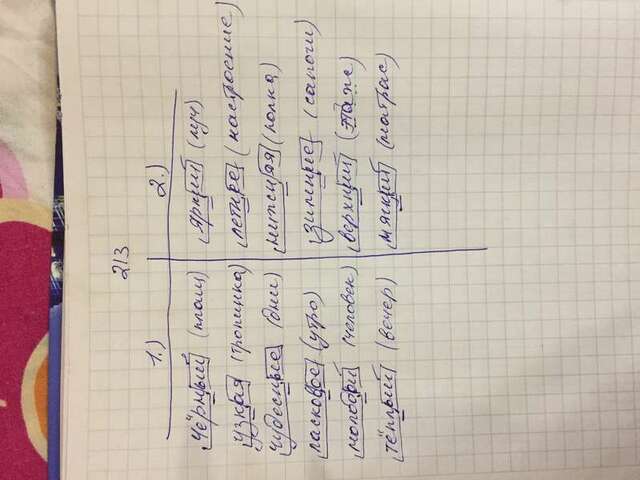 213
1.) 2.)
чёрный (плащ) яркий (луч)
узкая (тропинка) летнее (настроение)
чудесные (дни) нижняя (полка)
ласковое (утро) зимние (сапоги)
молодой (человек) верхний (этаж)
тёплый (вечер) мягкий (матрас)